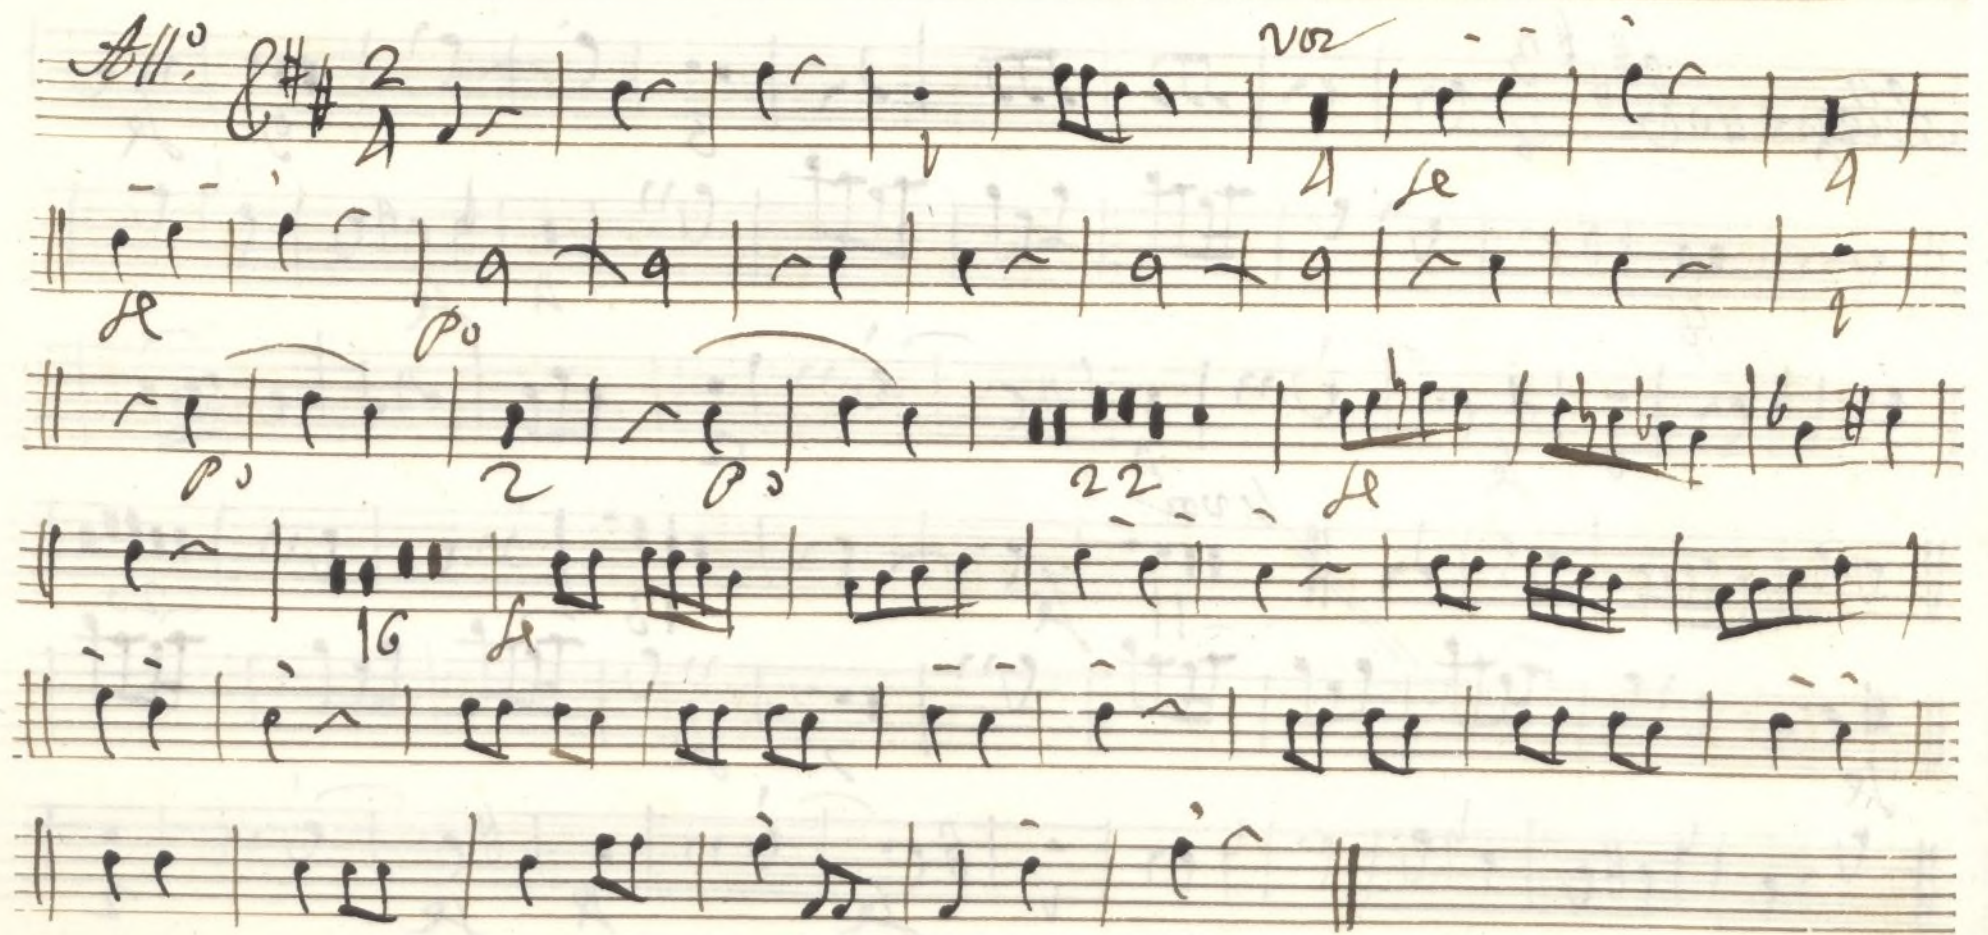 All.º 2 4 voz
1 4 fe 4
fe po 1
po 2 po 22 fe
16 fe